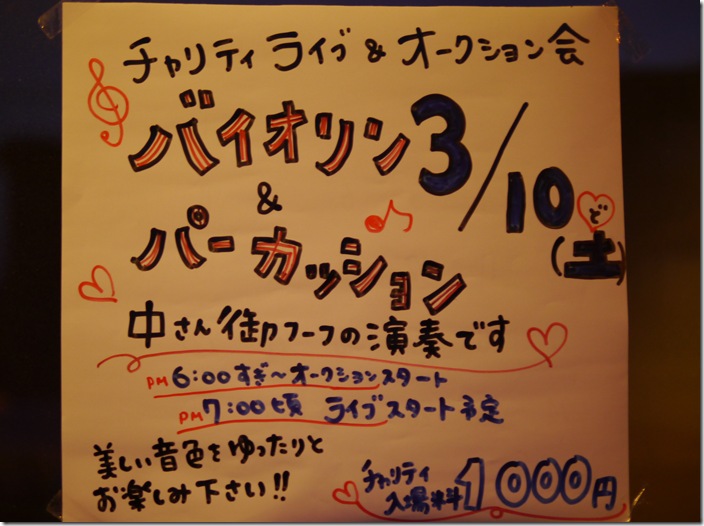 チャリティ ライブ & オークション会
バイオリン 3/10
ど
(土)
&
パーカッション
中さん御フーフの演奏です
PM 6:00すぎ〜オークションスタート
PM 7:00頃 ライブスタート予定
美しい音色をゆったりと
お楽しみ下さい!!
チャリティ
入場料 1000円